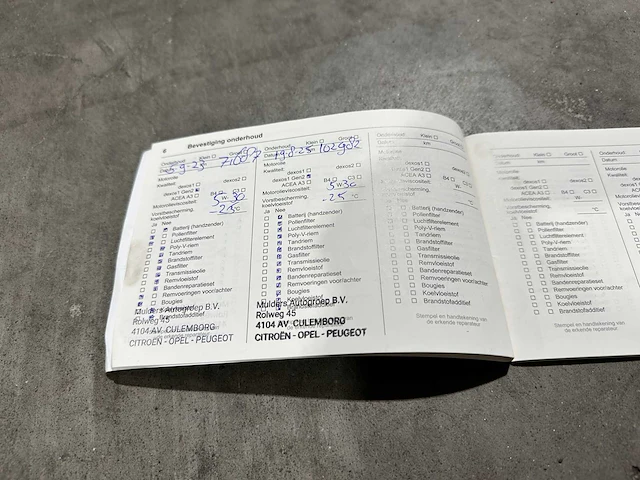 8 Bevestiging onderhoud
Onderhoud: Klein Groot
5-9-23
Motorolie
Kwaliteit:
dexos1 dexos2
dexos1 Gen2
ACEA A3 B4 C3
Motorolieviscositeit:
5 W 30
Vorstbescherming,
koelvloeistof -25 °C
Ja Nee
Batterij (handzender)
Pollenfilter
Luchtfilterelement
Poly-V-riem
Tandriem
Brandstoffilter
Gasfilter
Transmissieolie
Remvloeistof
Bandenreparatieset
Remvoeringen voor/achter
Bougies
Brandstofadditief
Mulders Autogroep B.V.
Rolweg 45
4104 AV CULEMBORG
CITROËN - OPEL - PEUGEOT
Onderhoud: Klein Groot
102902
Motorolie
Kwaliteit:
dexos1 dexos2
dexos1 Gen2
ACEA A3 B4 C3
Motorolieviscositeit:
5 W 30
Vorstbescherming,
koelvloeistof -25 °C
Ja Nee
Batterij (handzender)
Pollenfilter
Luchtfilterelement
Poly-V-riem
Tandriem
Brandstoffilter
Gasfilter
Transmissieolie
Remvloeistof
Bandenreparatieset
Remvoeringen voor/achter
Bougies
Mulders Autogroep B.V.
Rolweg 45
4104 AV CULEMBORG
CITROËN - OPEL - PEUGEOT
Onderhoud: Klein Groot
Datum: km:
Motorolie
Kwaliteit:
dexos1 dexos2
dexos1 Gen2
ACEA A3 B4 C3
Motorolieviscositeit:
W
Vorstbescherming,
koelvloeistof °C
Ja Nee
Batterij (handzender)
Pollenfilter
Luchtfilterelement
Poly-V-riem
Tandriem
Brandstoffilter
Gasfilter
Transmissieolie
Remvloeistof
Bandenreparatieset
Remvoeringen voor/achter
Bougies
Koelvloeistof
Brandstofadditief
Stempel en handtekening van
de erkende reparateur
Onderhoud: Klein Groot
Datum: km:
Motorolie
Kwaliteit:
dexos1 dexos2
dexos1 Gen2
ACEA A3 B4 C3
Motorolieviscositeit:
W
Vorstbescherming,
koelvloeistof °C
Ja Nee
Batterij (handzender)
Pollenfilter
Luchtfilterelement
Poly-V-riem
Tandriem
Brandstoffilter
Gasfilter
Transmissieolie
Remvloeistof
Bandenreparatieset
Remvoeringen voor/achter
Bougies
Koelvloeistof
Brandstofadditief
Stempel en handtekening van
de erkende reparateur